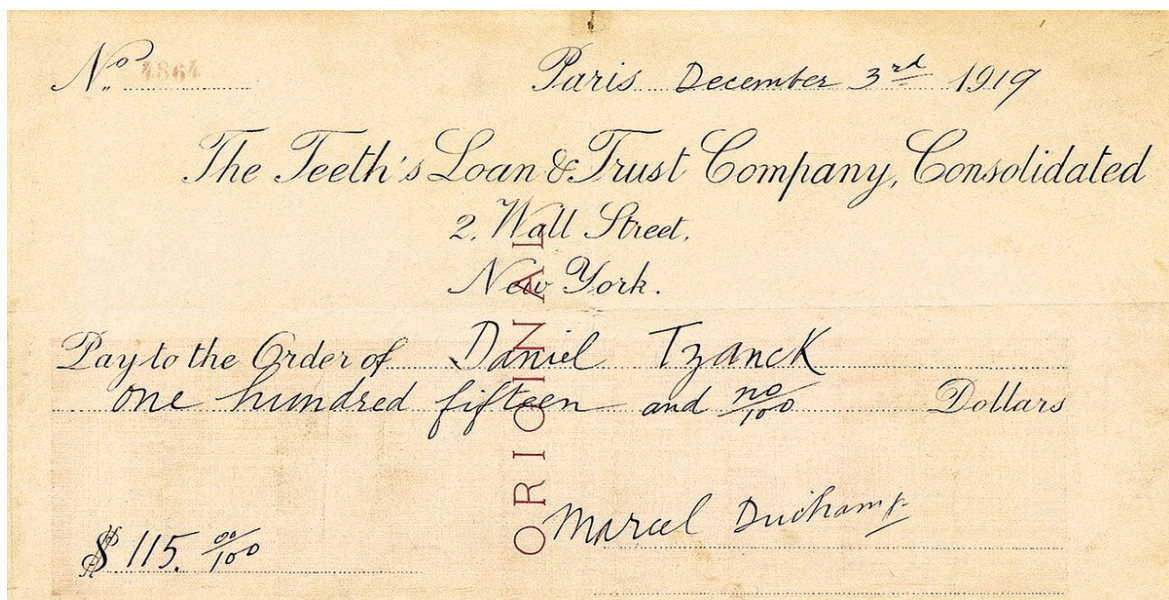 No. 4864 Paris December 3rd 1919
The Teeth's Loan & Trust Company, Consolidated
2, Wall Street,
New York.
Pay to the Order of Daniel Tzanck
one hundred fifteen and no/100 Dollars
$ 115. 00/100 Marcel Duchamp
ORIGINAL